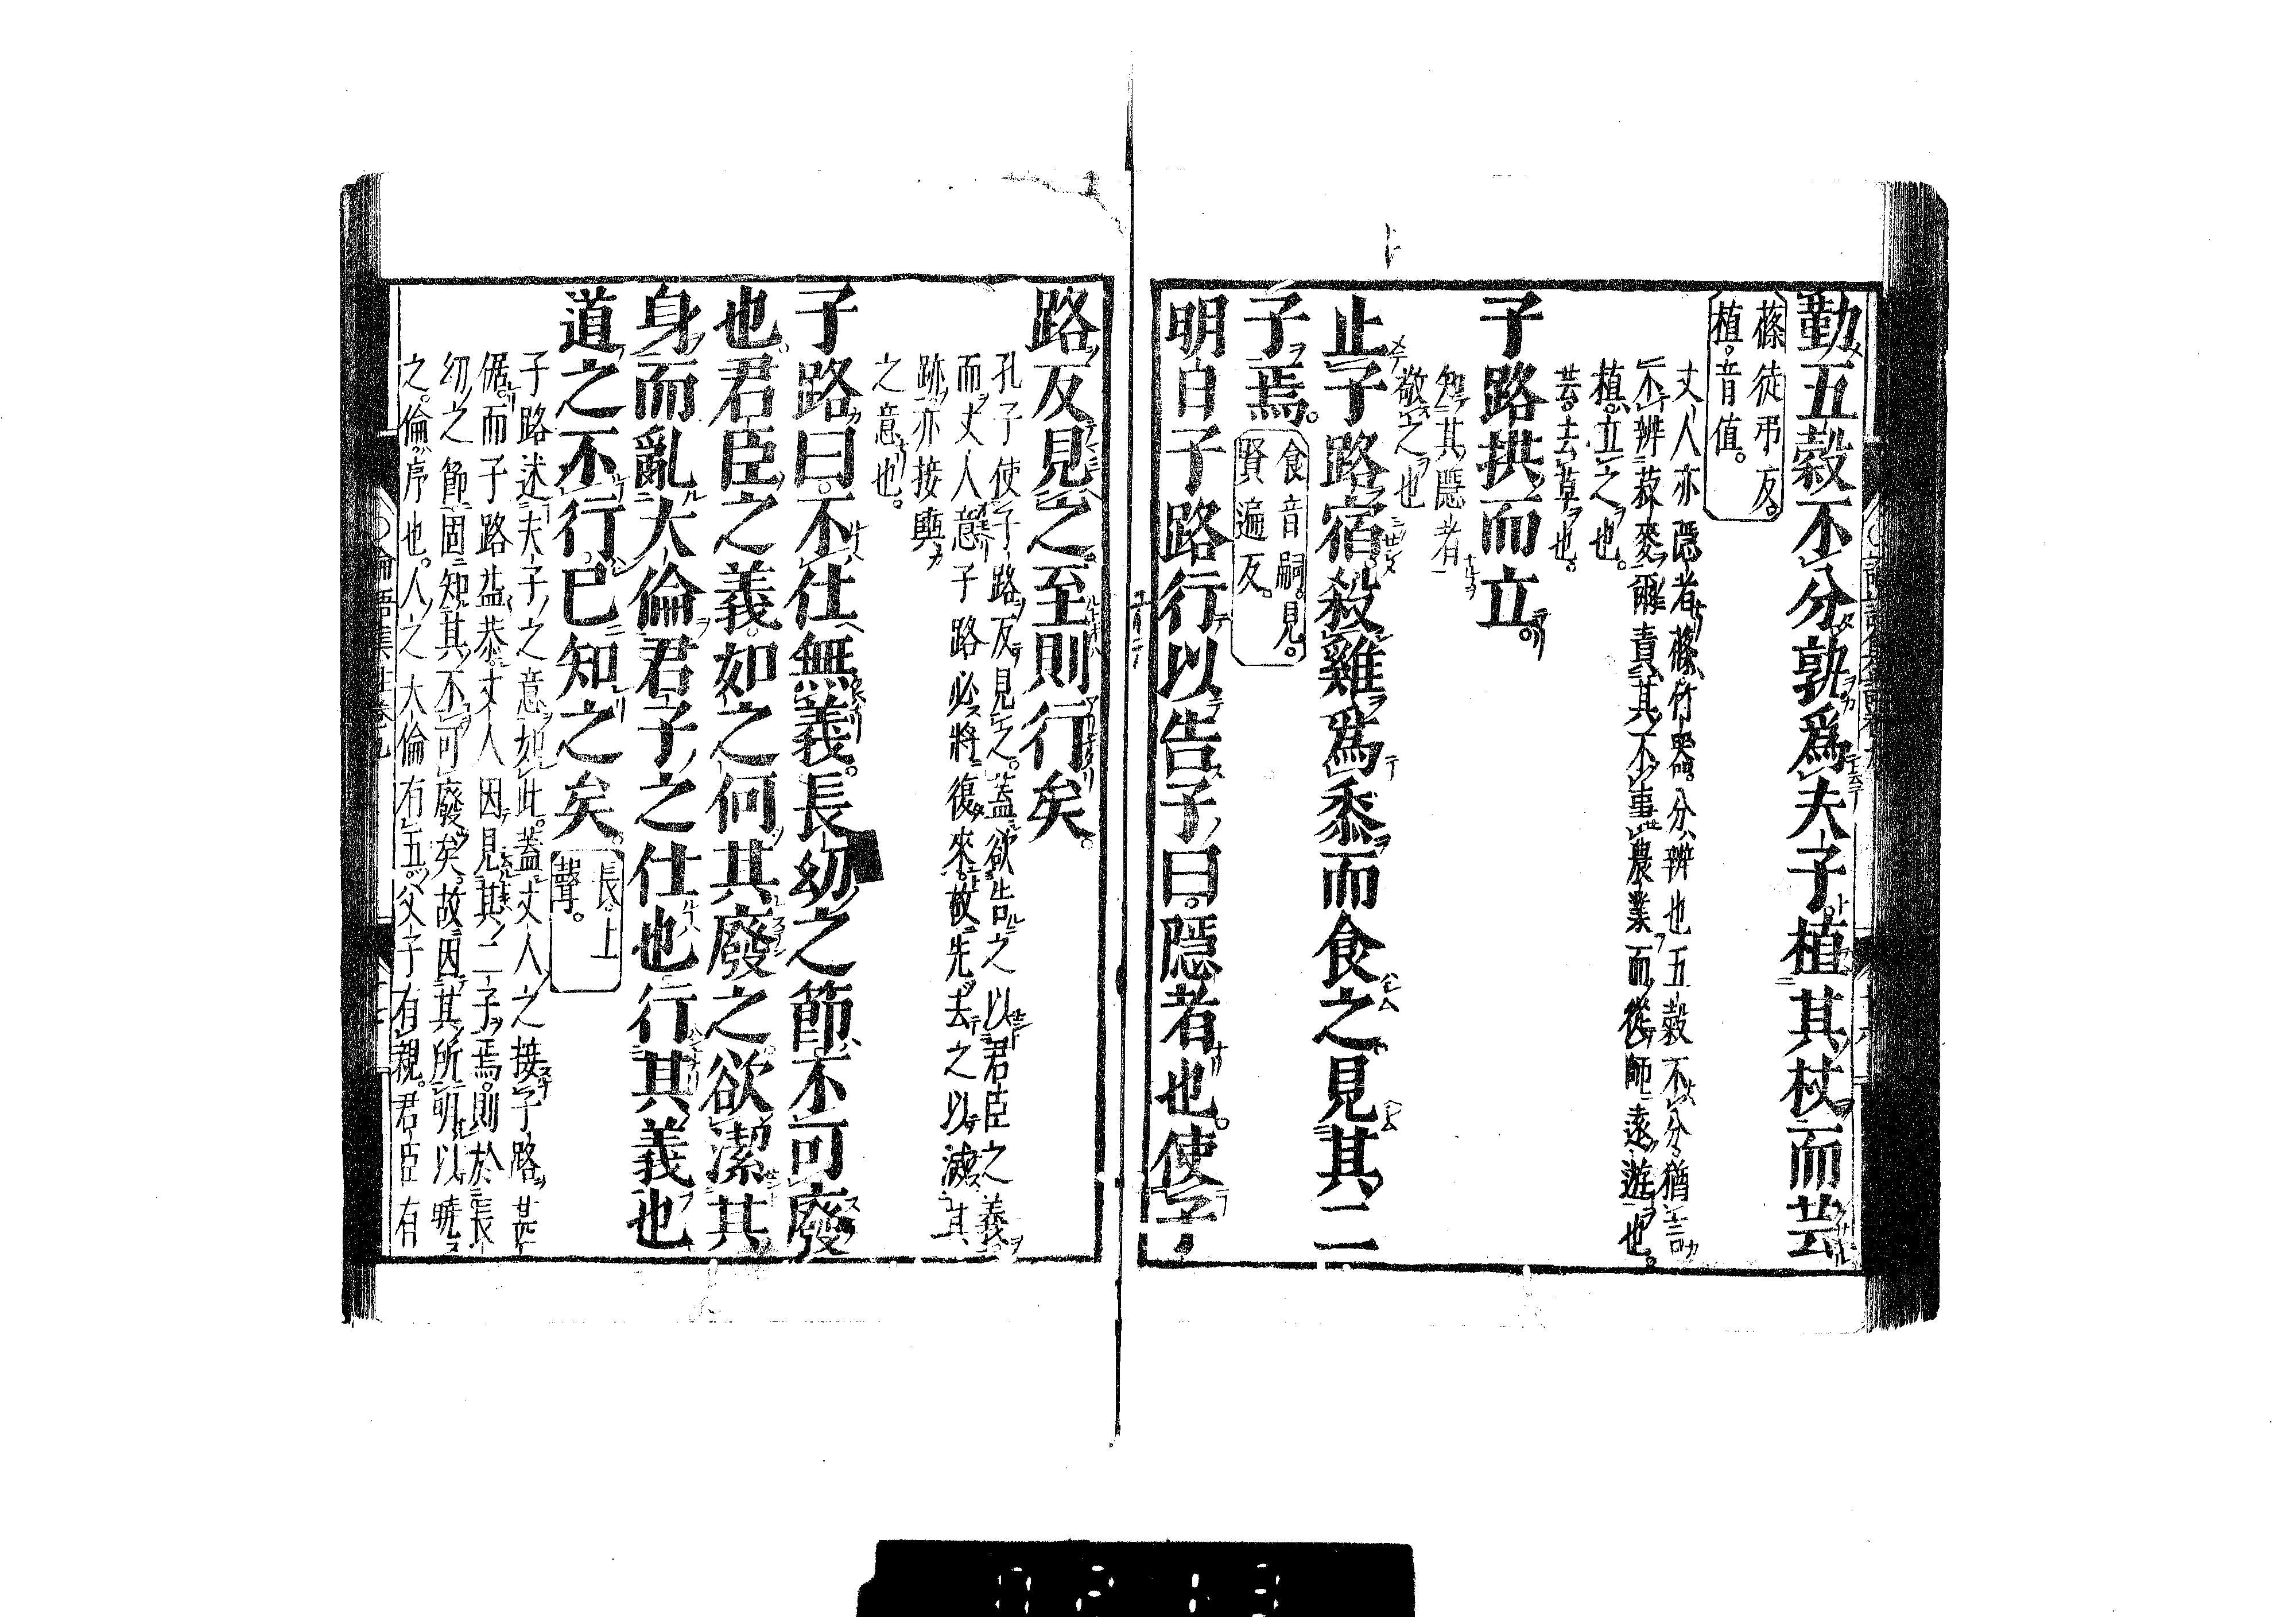 勤五穀不分孰爲夫子植其杖而芸
蓧徒弔反。
植。音值。
丈人亦隱者。蓧。竹器。分。辨也五穀不分猶言
不辨菽麥爾責其不事農業而從師遠遊也。
植。立之也。
芸。去草也。
子路拱而立。
知其隱者
敬之也
止子路宿。殺雞爲黍而食之見其二
子焉。
食音嗣。見。
賢遍反。
明日子路行以告子曰。隱者也。使子
路反見之。至則行矣。
孔子使子路反見之。蓋欲告之以君臣之義
而丈人意子路必將復來。故先去之以滅其
跡。亦接輿
之意也。
子路曰。不仕無義。長幼之節不可廢
也。君臣之義。如之何其廢之。欲潔其
身而亂大倫君子之仕也。行其義也
道之不行。已知之矣。
長。上
聲。
子路述夫子之意如此。蓋丈人之接子路甚
倨。而子路益恭丈人因見其二子焉。則於長
幼之節固知其不可廢矣。故因其所明以曉
之。倫。序也。人之大倫有五。父子有親。君臣有
論語集註卷九